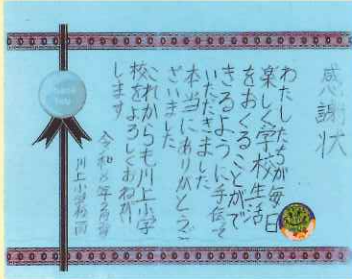 感謝状
わたしたちが毎日
楽しく学校生活
をおくることがで
きるように手伝って
いただきました
本当にありがとうご
ざいました
これからも川上小学
校をよろしくおねがい
します
川上小学校一同
Thank
You